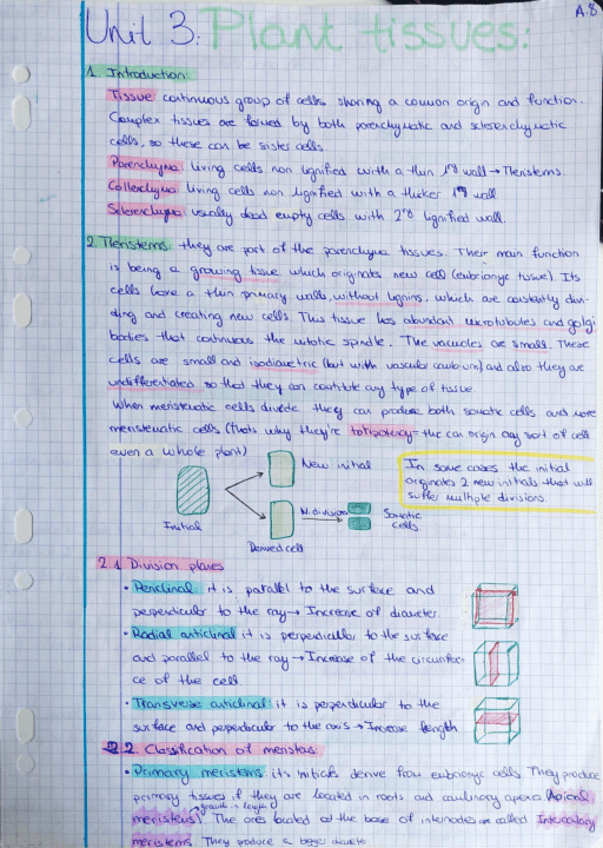 A.8
Unit 3: Plant tissues:
1. Introduction:
Tissue continuous group of cells sharing a common origin and function.
Complex tissues are formed by both parenchymatic and sclerenchymatic
cells, so these can be sister cells.
Parenchyma: living cells non lignified with a thin 1ry wall → Meristems.
Collenchyma: living cells non lignified with a thicker 1ry wall
Sclerenchyma: usually dead empty cells with 2ry lignified wall.
2. Meristems: they are part of the parenchyma tissues. Their main function
is being a growing tissue which originates new cell (embrionyc tissue). Its
cells have a thin primary walls, without lignins, which are constantly divi-
ding and creating new cells. This tissue has abundant microtubules and golgi
bodies that continuous the mitotic spindle. The vacuoles are small. These
cells are small and isodiametric (but with vascular cambium) and also they are
undifferentiated so that they can constitute any type of tissue.
When meristematic cells divide they can produce both somatic cells and more
meristematic cells (thats why they're totipotency - the can origin any sort of cell
even a whole plant)
New initial
In some cases the initial
originates 2 new initials that will
suffer multiple divisions.
Initial
N.divisions
Somatic
cells
Derived cell
2.1 Division planes
• Periclinal: it is parallel to the surface and
perpendicular to the ray → Increase of diameter.
• Radial anticlinal it is perpendicular to the surface
and parallel to the ray → Increase of the circunferen
ce of the cell
• Transverse anticlinal: it is perpendicular to the
surface and perpendicular to the axis → Increase length
2.2. Classification of meristems:
• Primary meristems: its initials derive from embrionyc cells. They produce
primary tissues if they are located in roots and caulinary apexs (Apical
→ growth in length
meristems). The ones located at the base of internodes are called Intercalary
meristems. They produce a bigger diameter